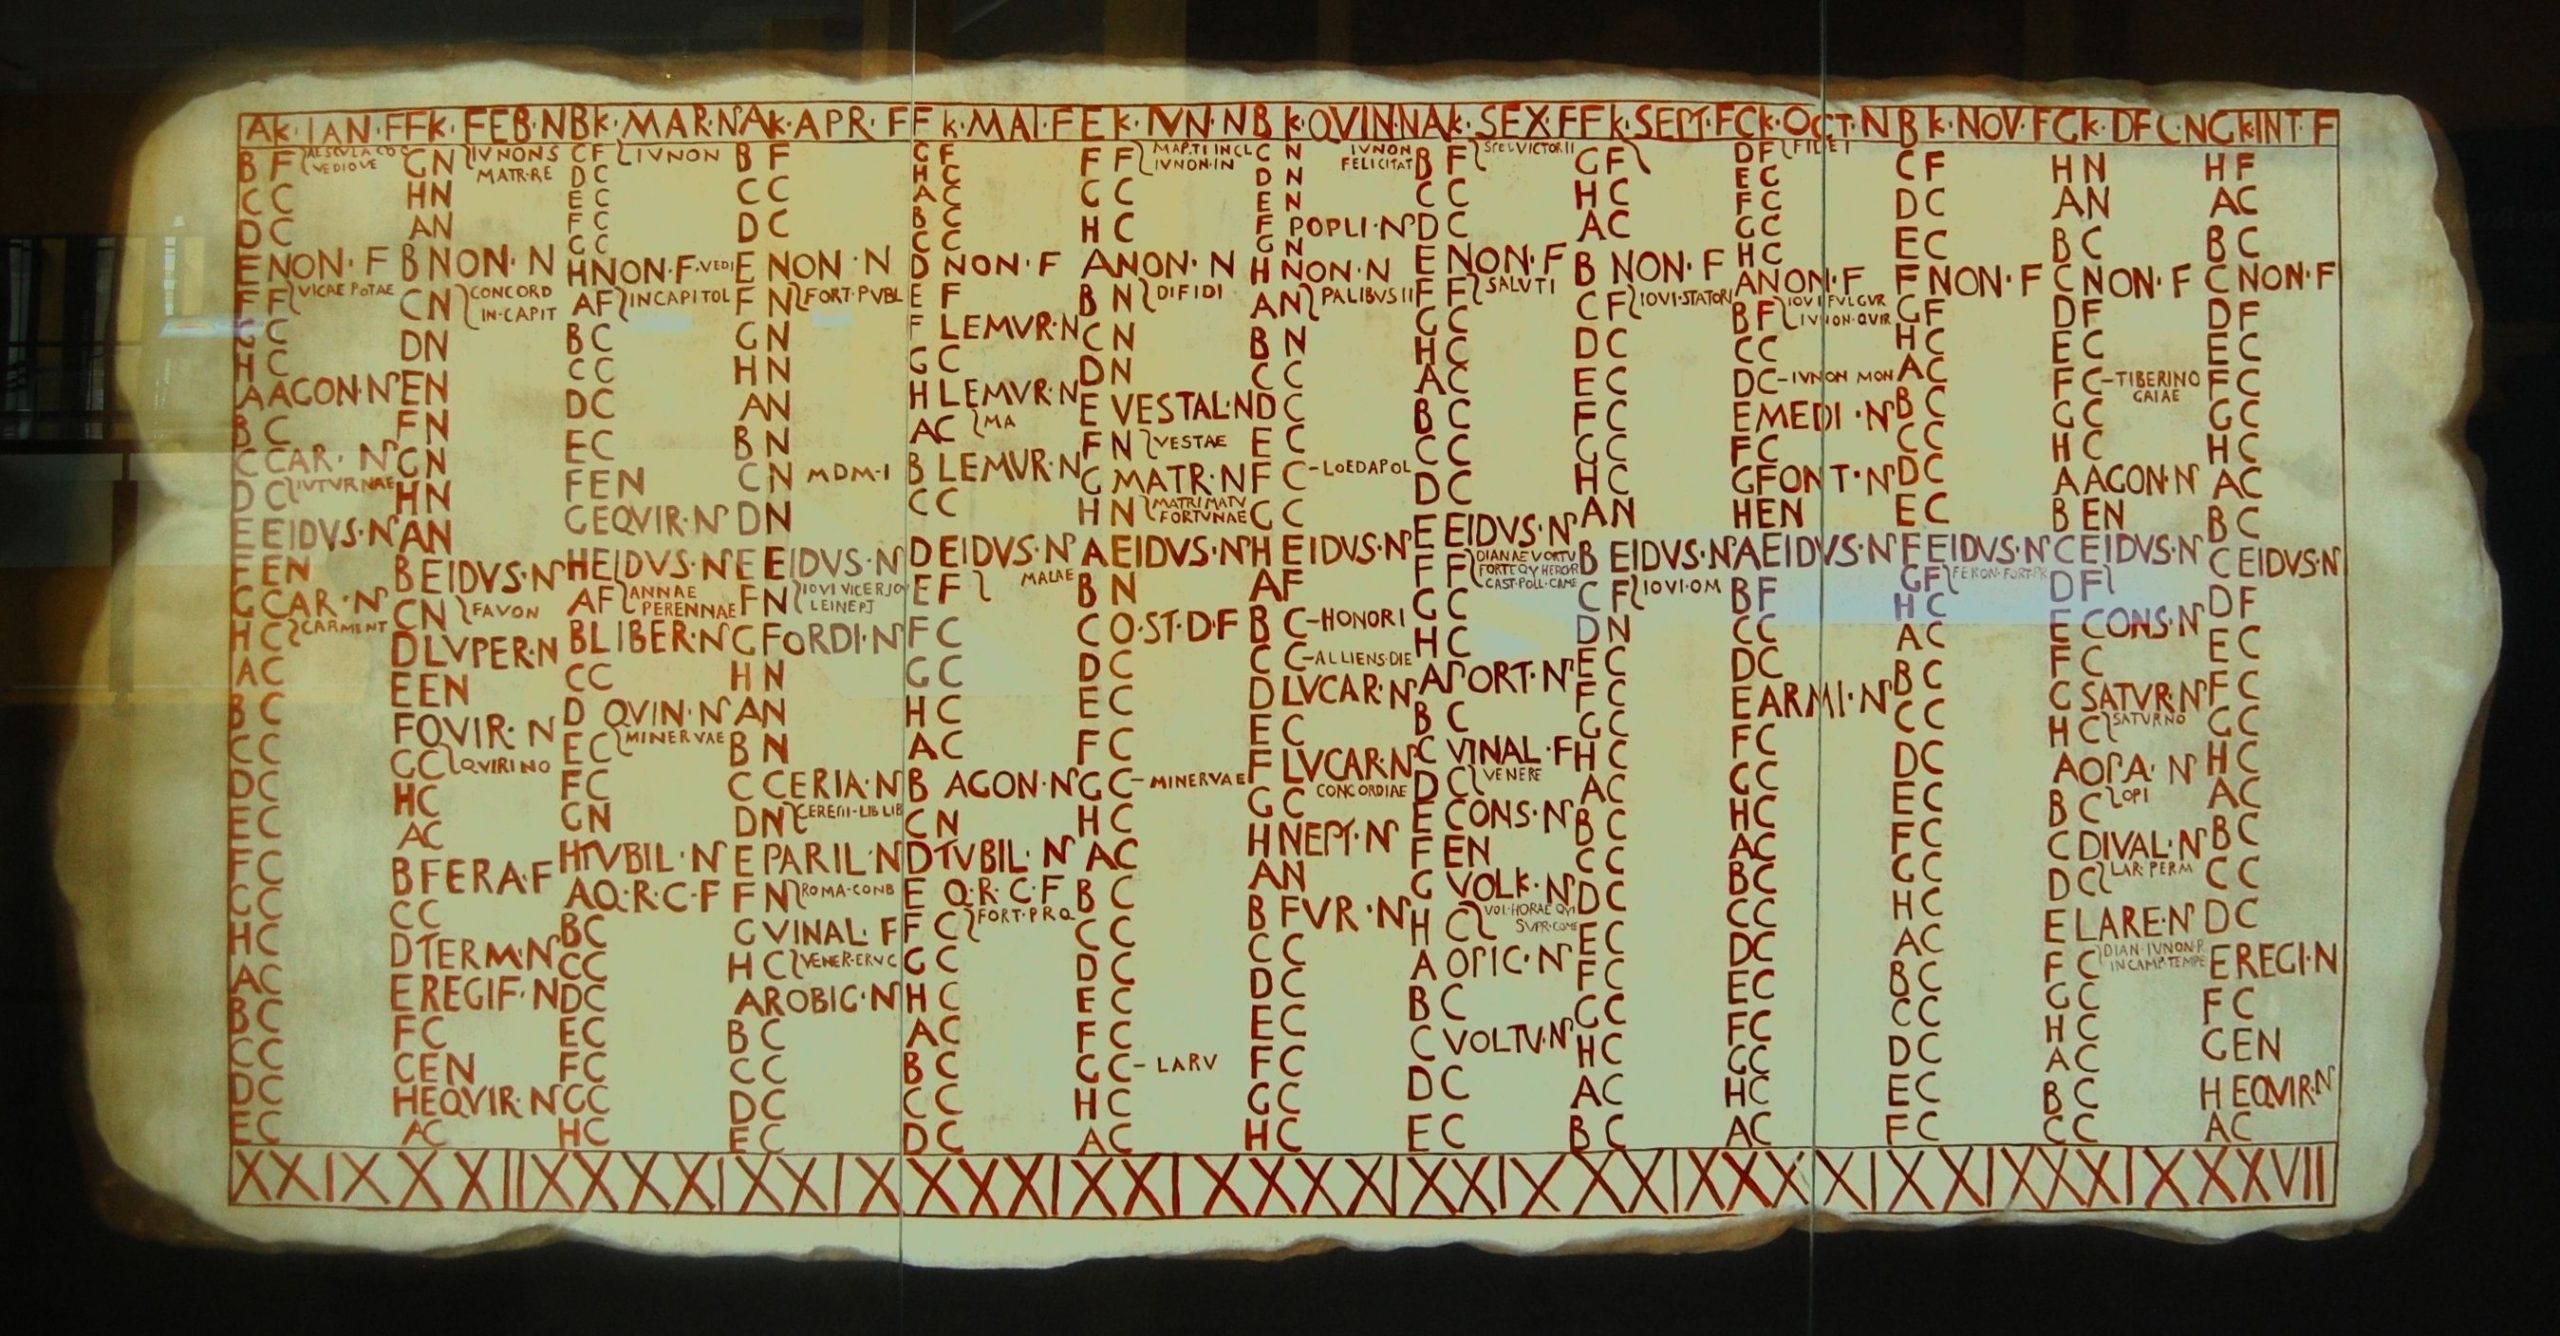 A K·IAN·F F K·FEB·N B K·MAR·N A K·APR·F F K·MAI·F E K·IVN·N B K·QVIN·N A K·SEX·F F K·SEPT·F C K·OCT·N B K·NOV·F G K·DEC·N G K·INT·F
B F
VEDIOVE
C C
D C
E NON·F
F F VICAE POTAE
G C
H C
A AGON·N
B C
C CAR·N
D C IVTVRNAE
E EIDVS·N
F EN
G CAR·N
H C CARMENT
A C
B C
C C
D C
E C
F C
G C
H C
A C
B C
C C
D C
E C
G N IVNONS
MATR·RE
H N
A N
B NON·N
C N CONCORD
IN·CAPIT
D N
E N
F N
G N
H N
A N
B EIDVS·N
C N FAVON
D LVPER·N
E EN
F QVIR·N
G C QVIRINO
H C
A C
B FERA·F
C C
D TERM·N
E REGIF·N
F C
G EN
H EQVIR·N
A C
C F IVNON
D C
E C
F C
G C
H NON·F·VEDI
A F IN CAPITOL
B C
C C
D C
E C
F EN
G EQVIR·N
H EIDVS·N
A F ANNAE
PERENNAE
B LIBER·N
C C
D QVIN·N
E C MINERVAE
F C
G N
H TVBIL·N
A Q·R·C·F
B C
C C
D C
E C
F C
G C
H C
B F
C C
D C
E NON·N
F N FORT·PVBL
G N
H N
A N
B N
C N MDM·I
D N
E EIDVS·N
F N IOVI VICER
G FORDI·N
H N
A N
B N
C CERIA·N
D N LIB LIB
E PARIL·N
F N ROMA·COND
G VINAL·F
H C VENER·ERVC
A ROBIG·N
B C
C C
D C
E C
G F
H C
A C
B C
C C
D NON·F
E F
F LEMVR·N
G C
H LEMVR·N
A C MA
B LEMVR·N
C C
D EIDVS·N
E F MALAE
F C
G C
H C
A C
B AGON·N
C N
D TVBIL·N
E Q·R·C·F
F C FORT·PRQ
G C
H C
A C
B C
C C
D C
F F MARTI IN CL
IVNON·IN
G C
H C
A NON·N
B N DIFIDI
C N
D N
E VESTAL·N
F N VESTAE
G MATR·N
H N MATRI MATV
FORTVNAE
A EIDVS·N
B N
C Q·ST·D·F
D C
E C
F C
G C-MINERVAE
H C
A C
B C
C C
D C
E C
F C
G C-LARV
H C
A C
C N IVNON
FELICITAT
D N
E N
F POPLI·N
G N
H NON·N
A N PALIBVS II
B N
C C
D C
E C
F C-LOEDAPOL
G C
H EIDVS·N
A F
B C-HONORI
C C-ALLIENS·DIE
D LVCAR·N
E C
F LVCAR·N
G C CONCORDIAE
H NEPT·N
A N
B FVR·N
C C
D C
E C
F C
G C
H C
B F SPEI VICTOR II
C C
D C
E NON·F
F F SALVTI
G C
H C
A C
B C
C C
D C
E EIDVS·N
F F DIANAE VORTV
FORTEQV HERCR
CAST·POLL·CAME
G C
H C
A PORT·N
B C
C VINAL·F
D C VENERE
E CONS·N
F EN
G VOLK·N
H C VOL·HORAE QVI
SVPR·COME
A OPIC·N
B C
C VOLTV·N
D C
E C
G F
H C
A C
B NON·F
C F IOVI·STATORI
D C
E C
F C
G C
H C
A N
B EIDVS·N
C F IOVI·OM
D N
E C
F C
G C
H C
A C
B C
C C
D C
E C
F C
G C
H C
A C
B C
D F FIDEI
E C
F C
G C
H C
A NON·F
B F IOVI FVLGVR
IVNON·QVIR
C C
D C-IVNON MON
E MEDI·N
F C
G FONT·N
H EN
A EIDVS·N
B F
C C
D C
E ARMI·N
F C
G C
H C
A C
B C
C C
D C
E C
F C
G C
H C
A C
C F
D C
E C
F NON·F
G F
H C
A C
B C
C C
D C
E C
F EIDVS·N
G F FERON·FORT·PR
H C
A C
B C
C C
D C
E C
F C
G C
H C
A C
B C
C C
D C
E C
F C
H N
A N
B C
C NON·F
D F
E C
F C-TIBERINO
GAIAE
G C
H C
A AGON·N
B EN
C EIDVS·N
D F
E CONS·N
F C
G SATVR·N
H C SATVRNO
A OPA·N
B C OPI
C DIVAL·N
D C LAR·PERM
E LARE·N
F C DIAN·IVNON·R
IN CAMP·TEMPE
G C
H C
A C
B C
C C
H F
A C
B C
C NON·F
D F
E C
F C
G C
H C
A C
B C
C EIDVS·N
D F
E C
F C
G C
H C
A C
B C
C C
D C
E REGI·N
F C
G EN
H EQVIR·N
A C
XXIX XXIIX XXXI XXIX XXXI XXIX XXXI XXIX XXIX XXXI XXIX XXIX XXVII